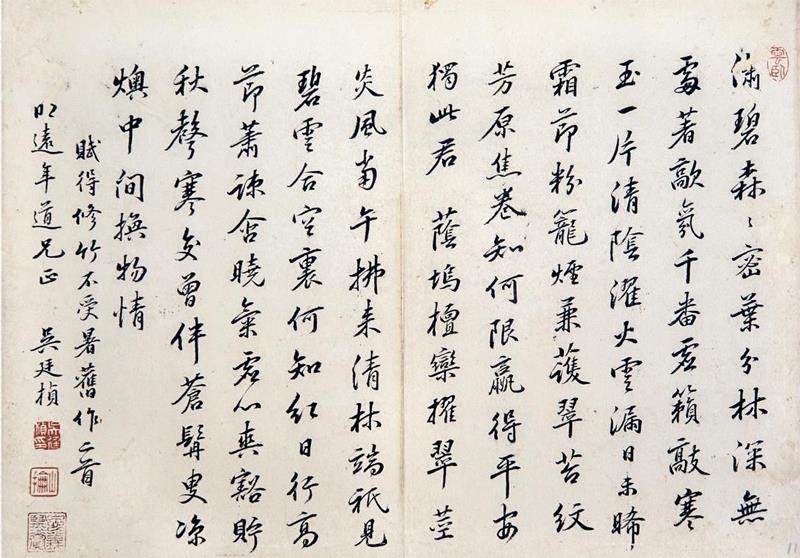 滿碧森〻密葉分林深無
處著歊氛千番虛籟敲寒
玉一片清陰濯火雲漏日未晞
霜節粉籠煙兼護翠苔紋
芳原焦卷知何限贏得平安
獨此君 蔭塢檀欒擢翠莖
炎風當午拂來清林端祇見
碧雲合空裏何知紅日行高
節蕭疎含曉氣虛心爽豁貯
秋聲寒交曾伴蒼髯叟涼
燠中間撫物情
賦得修竹不受暑舊作二首
明遠年道兄正 吳廷楨